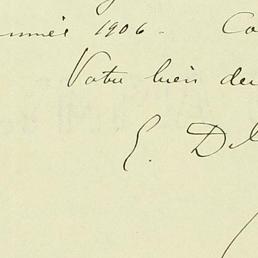 année 1906. Co
Votre bien de
E. Del